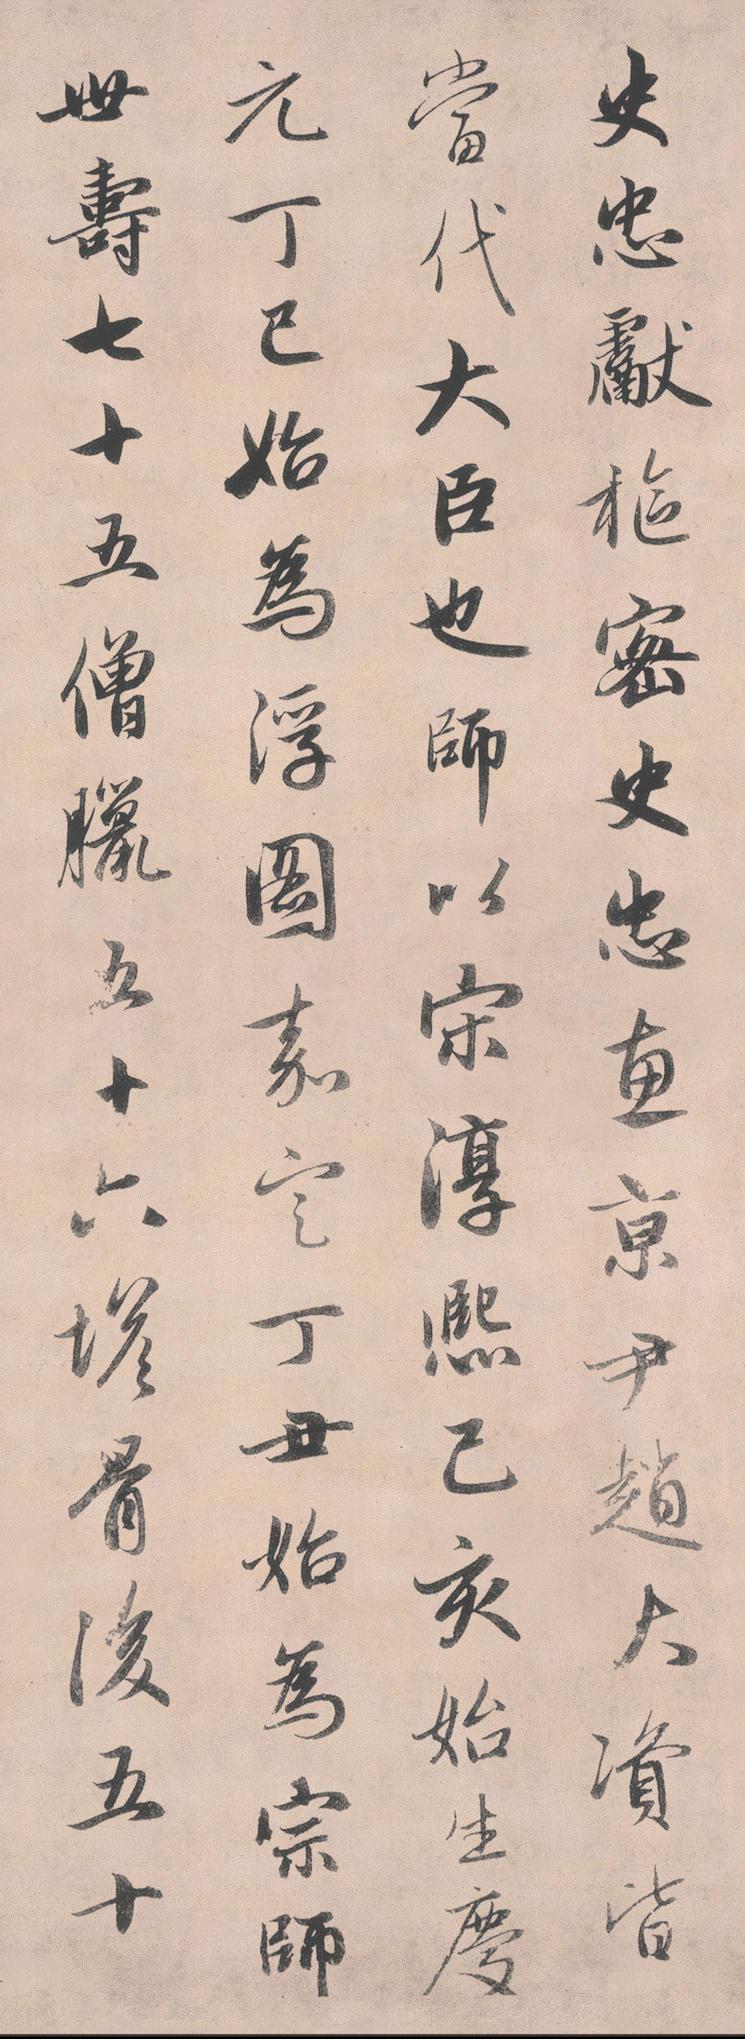 史忠獻樞密史忠惠京尹趙大資皆
當代大臣也師以宋淳熙己亥始生慶
元丁巳始為浮圖嘉定丁丑始為宗師
世壽七十五僧臘五十六塔骨後五十